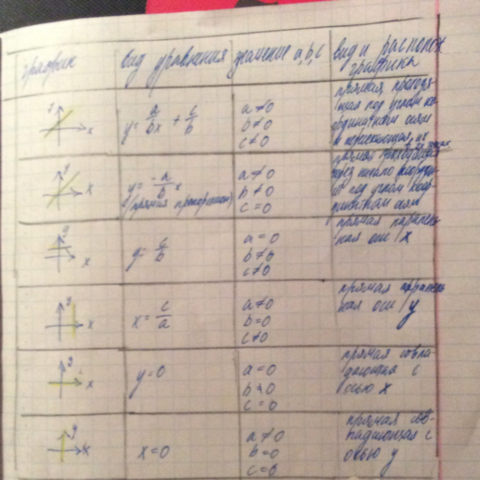 график вид уравнения значение a, b, c вид и располож. графика
y x y = a/bx + c/b a ≠ 0 b ≠ 0 c ≠ 0 прямая проходя-
щая под углом ко-
ординатным осям
и пересекающая их
y x y = -a/b x (прямая пропорцион) a ≠ 0 b ≠ 0 c = 0 прямая проходящая
через начало координат
под углом коор-
динатным осям
y x y = c/b a = 0 b ≠ 0 c ≠ 0 прямая паралель-
ная оси x
y x x = c/a a ≠ 0 b = 0 c ≠ 0 прямая паралель-
ная оси y
y x y = 0 a = 0 b ≠ 0 c = 0 прямая совпа-
дающая с
осью x
y x x = 0 a ≠ 0 b = 0 c = 0 прямая сов-
падающая с
осью y